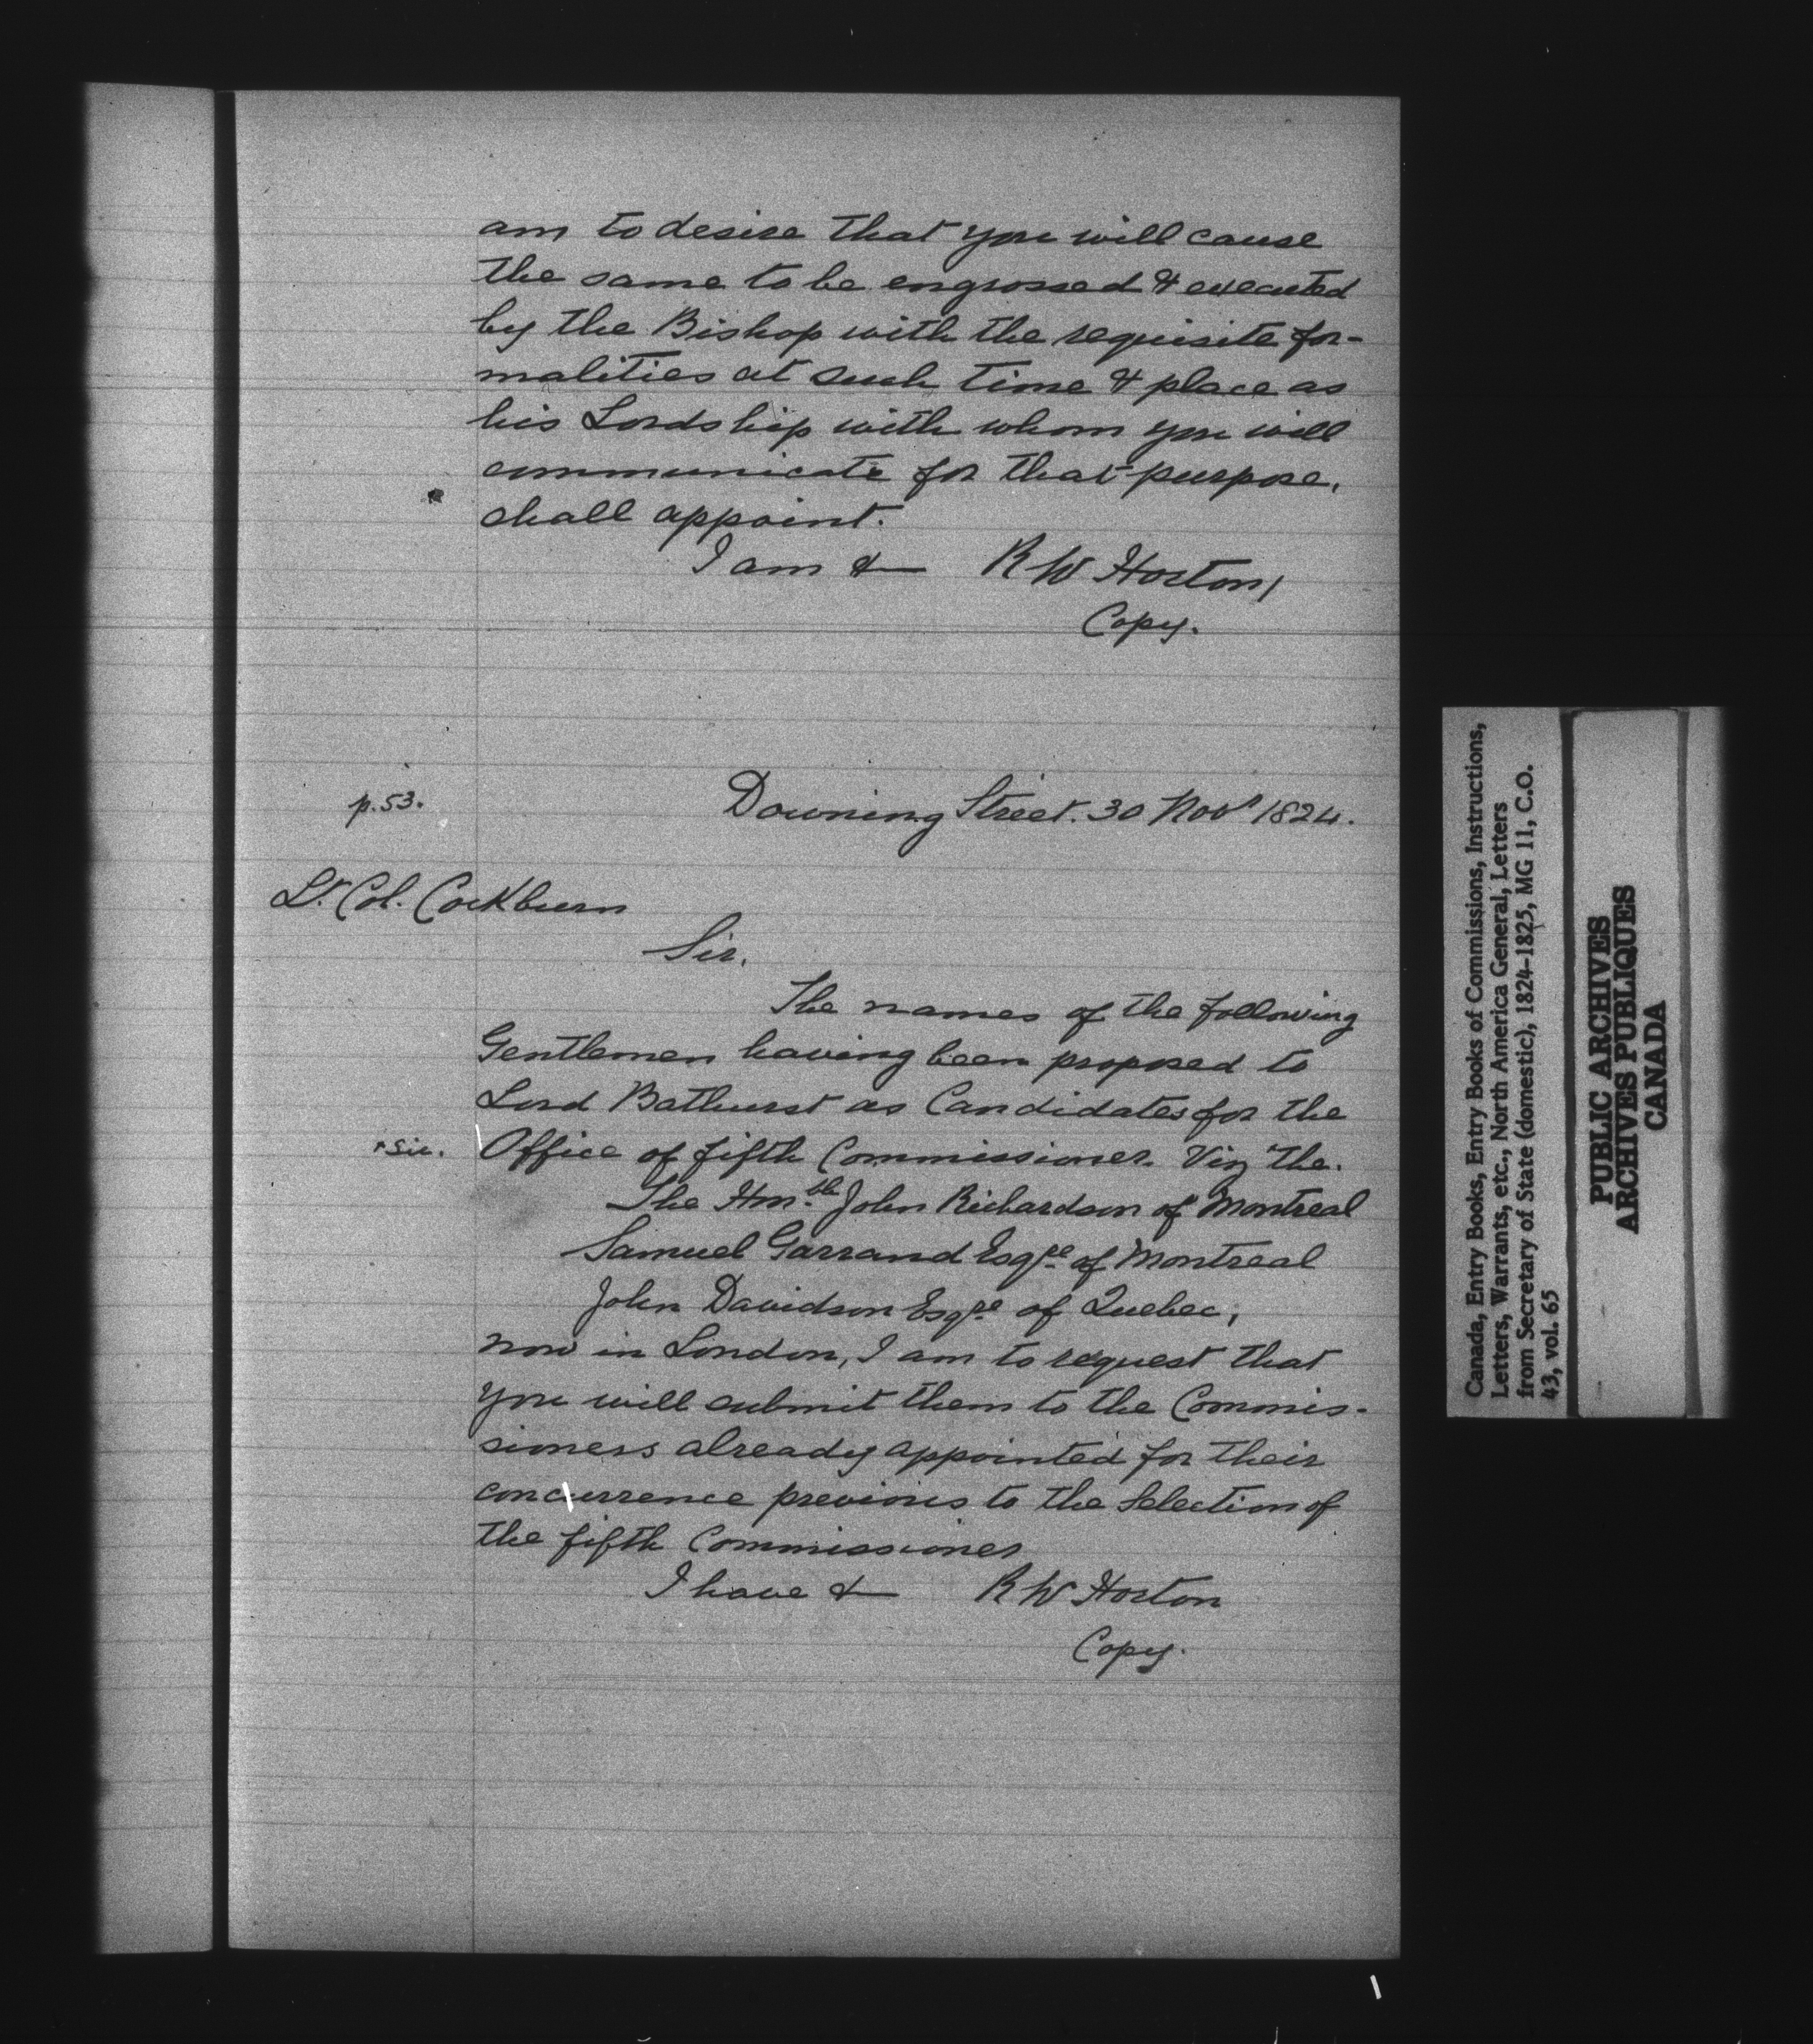 am to desire that you will cause
the same to be engrossed & executed
by the Bishop with the requisite for-
malities at such time & place as
his Lordship with whom you will
communicate for that purpose,
shall appoint.
I am & R W Horton,
Copy.
p. 53.
Downing Street. 30 Novr 1824.
Lt. Col. Cockburn
Sir.
The names of the following
Gentlemen having been proposed to
Lord Bathurst as Candidates for the
sic. Office of fifth Commissioner. Viz the.
The Honble John Richardson of Montreal
Samuel Garrand Esqre of Montreal
John Davidson Esqre of Quebec,
now in London, I am to request that
you will submit them to the Commis-
sioners already appointed for their
concurrence previous to the Selection of
the fifth Commissioner
I have & R W Horton
Copy.
Canada, Entry Books, Entry Books of Commissions, Instructions,
Letters, Warrants, etc., North America General, Letters
from Secretary of State (domestic), 1824-1825, MG 11, C.O.
43, vol. 65
PUBLIC ARCHIVES
ARCHIVES PUBLIQUES
CANADA